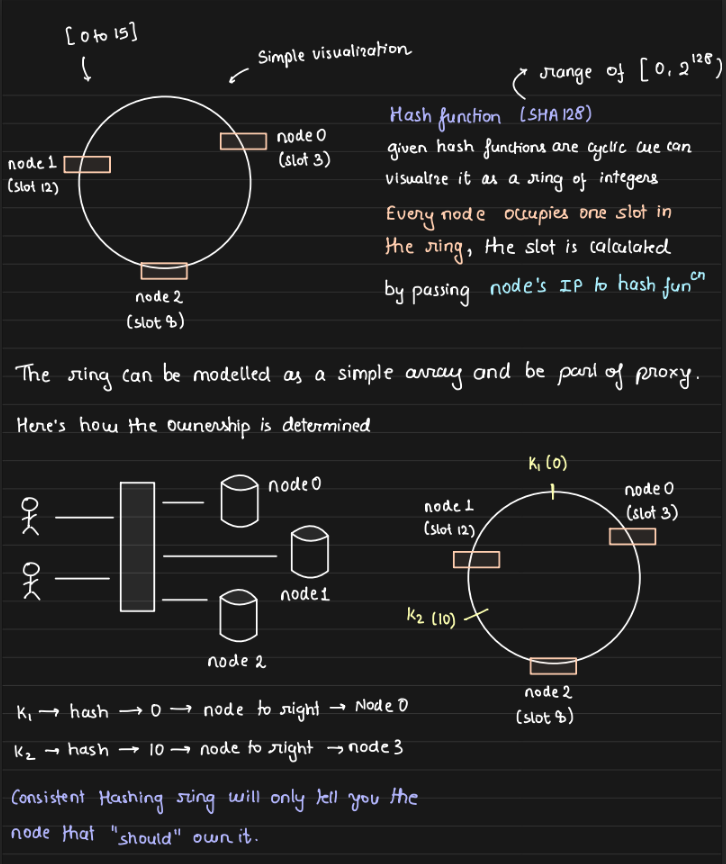 [0 to 15]
Simple visualization
node 0
(slot 3)
node 1
(slot 12)
node 2
(slot 8)
range of [0, 2^128)
Hash function (SHA128)
given hash functions are cyclic we can
visualize it as a ring of integers
Every node occupies one slot in
the ring, the slot is calculated
by passing node's IP to hash func^n
The ring can be modelled as a simple array and be part of proxy.
Here's how the ownership is determined
node 0
node 1
node 2
K₁ (0)
node 0
(slot 3)
node 1
(slot 12)
K₂ (10)
node 2
(slot 8)
K₁ → hash → 0 → node to right → Node 0
K₂ → hash → 10 → node to right → node 3
Consistent Hashing ring will only tell you the
node that "should" own it.